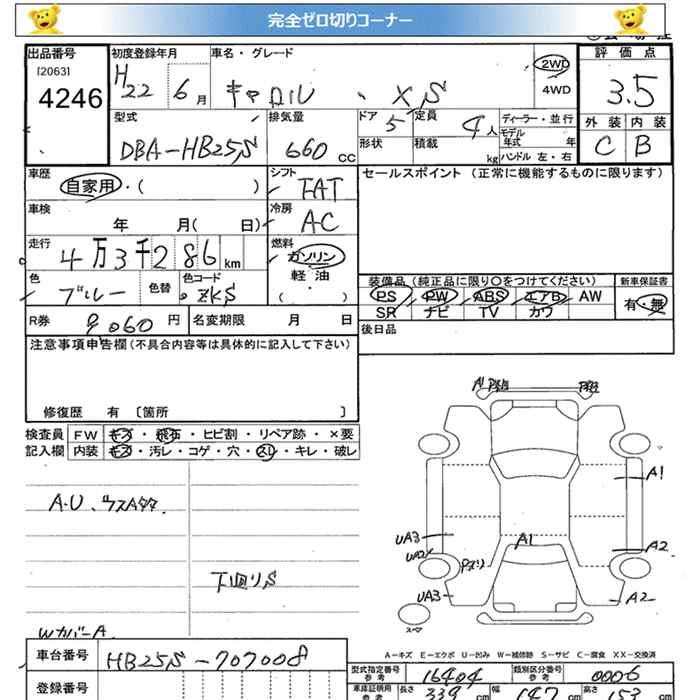 完全ゼロ切りコーナー
出品番号 初度登録年月 車名・グレード 評価点
[2063] 2WD
4246 H22 6月 キャロル XS 4WD 3.5
型式 排気量 ドア 5 定員 4人 ディーラー・並行 外装 内装
DBA-HB25S 660 CC 形状 積載 kg モデル年式 年 C B
ハンドル 左・右
車歴 シフト セールスポイント (正常に機能するものに限ります)
自家用・( ) FAT
車検 冷房
年 月( 日) AC
走行 燃料
4万3千286km ガソリン
軽油
装備品 (純正品に限り○をつけてください) 新車保証書
色 色替 色コード ( ・ ) PS PW ABS エアB AW 有・無
ブルー ZKS SR ナビ TV カワ
R券 9060円 名変期限 月 日 後日品
注意事項申告欄(不具合内容等は具体的に記入して下さい)
修復歴 有 [箇所 ]
検査員 FW キズ・飛石・ヒビ割・リペア跡・×要
記入欄 内装 キズ・汚レ・コゲ・穴・スレ・キレ・破レ
A1
A1
A.U
UA3 A1 A2
UA2
下回りS
UA3 A2
スペア
WカバーA
A-キズ E-エクボ U-凹み W-補修跡 S-サビ C-腐食 XX-交換済
車台番号 HB25S-707008
型式指定番号 参考 16404 類別区分番号 参考 0006
登録番号 車庫証明用 参考 長さ 339cm 幅 147cm 高さ 153cm